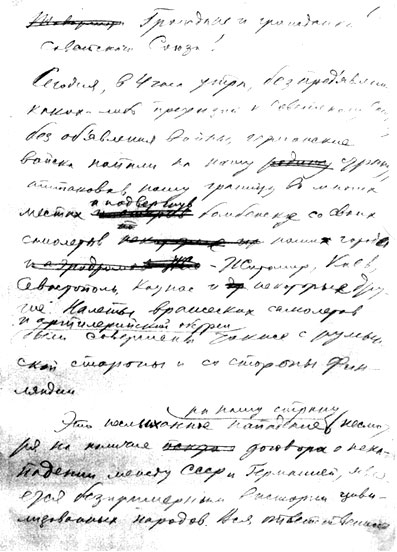 Граждане и гражданки!
Советского Союза!
Сегодня, в 4 часа утра, без предъявления
каких-либо претензий к Советскому Союзу
без объявления войны, германские
войска напали на нашу родину страну,
атаковав нашу границу во многих
местах и подвергнув бомбежке со своих
самолетов наши города
Житомир, Киев
Севастополь, Каунас и некоторые дру-
гие. Налеты вражеских самолетов
и артиллерийский обстрел
были совершены также с румын-
ской стороны и со стороны Фин-
ляндии
на нашу страну
Это неслыханное нападение, несмот-
ря на наличие договора о нена-
падении между СССР и Германией, явля-
ется беспримерным в истории циви-
лизованных народов. Вся ответственность